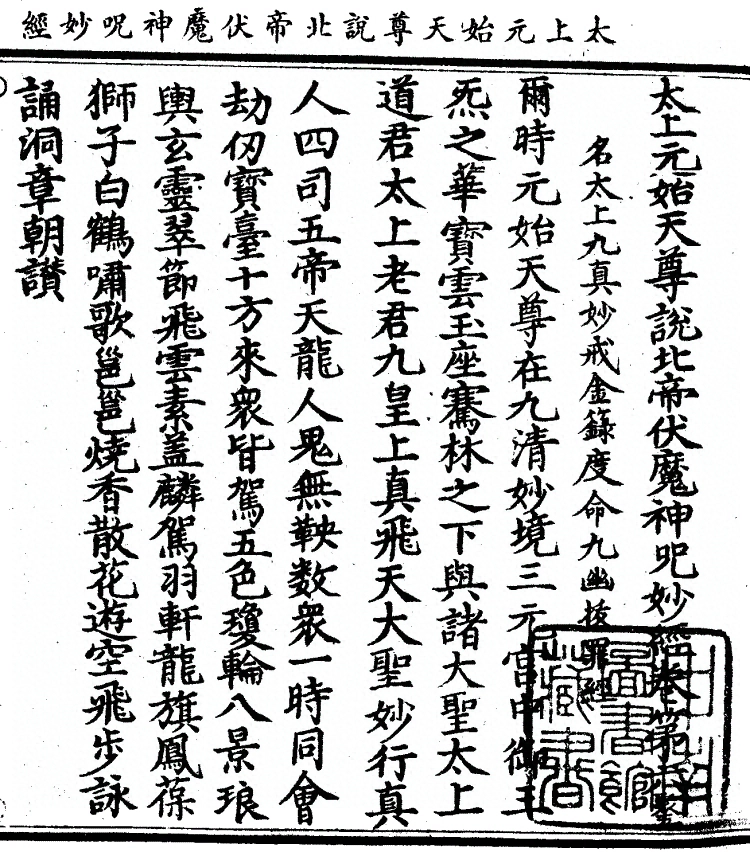 太上元始天尊說北帝伏魔神呪妙經
太上元始天尊說北帝伏魔神呪妙經卷第
名太上九真妙戒金籙度命九幽拔罪經
爾時元始天尊在九清妙境三元宮中御五
炁之華寶雲玉座騫林之下與諸大聖太上
道君太上老君九皇上真飛天大聖妙行真
人四司五帝天龍人鬼無鞅数衆一時同會
劫仞寶臺十方來衆皆駕五色瓊輪八景琅
輿玄靈翠節飛雲素蓋麟駕羽軒龍旗鳳葆
獅子白鶴嘯歌邕邕燒香散花遊空飛步詠
誦洞章朝讃
圖書館
藏書